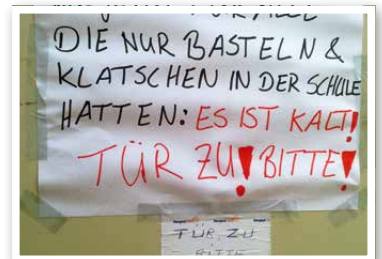 FÜR ALLE
DIE NUR BASTELN &
KLATSCHEN IN DER SCHULE
HATTEN: ES IST KALT!
TÜR ZU! BITTE!
TÜR ZU
BITTE